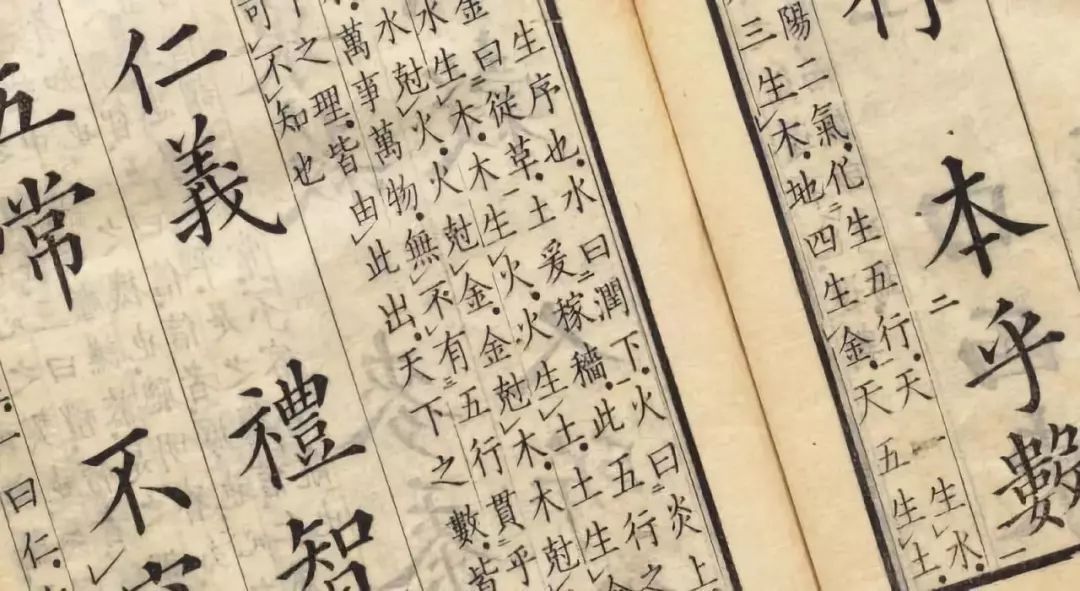 本乎數
陽二氣化生五行天一生水
三生木地四生金天五生土
生序也水曰潤下火曰炎上
金曰從草土爰稼穡此五行之
水生木木生火火生土土生
水尅火火尅金金尅木木尅
萬事萬物無不有五行貫乎
下之理皆由此出天下之數皆
可不知也
仁義禮智
五常不
一曰仁